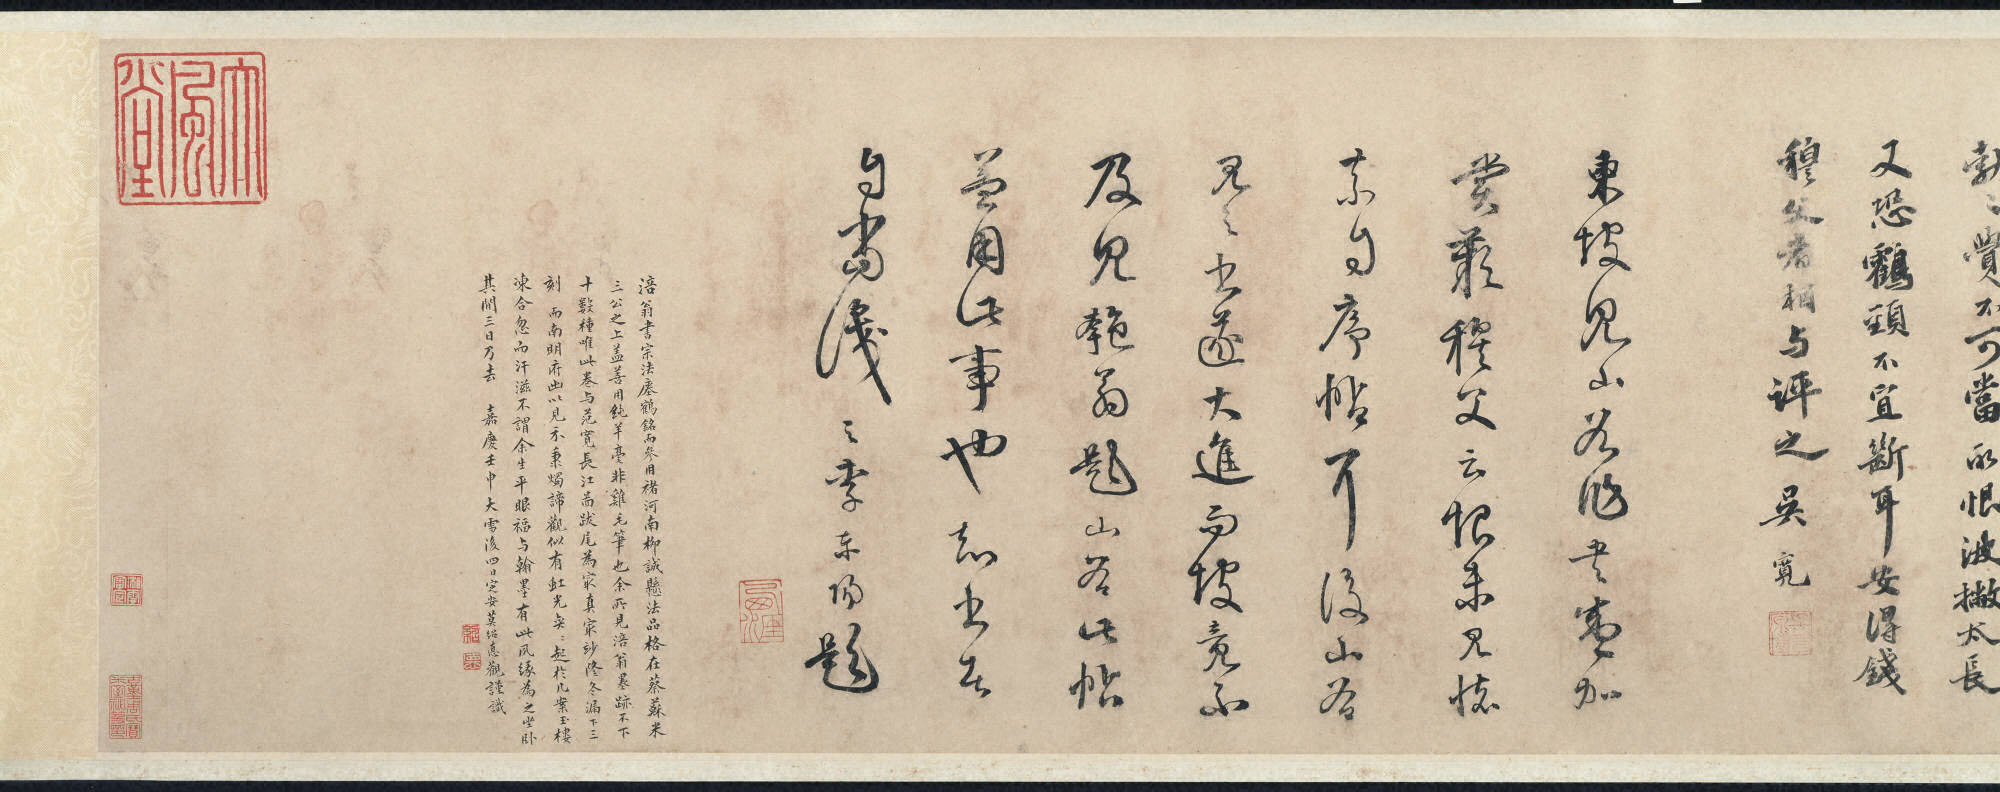 勃〻覺不可當恨波撇太長
又恐鸛頸不宜斷耳安得錢
穆父者相与評之吳寬
東坡見山谷作書輒加
賞歎穆父云恨未見懷
素自序帖耳後山谷
見之書遂大進而坡竟不
及見匏翁題山谷此帖
蓋用此事也知書者
自當識之李東陽題
涪翁書宗法瘞鶴銘而參用褚河南柳誠懸法品格在蔡蘇米
三公之上蓋善用純羊毫非雞毛筆也余所見涪翁墨跡不下
十數種唯此卷与范寬長江耑跋尾為最真最妙隆冬漏下三
刻而南明府出以見示秉燭諦觀似有虹光矣〻起於几案玉樓
凍合忽而汗滋不謂余生平眼福与翰墨有此夙緣為之坐卧
其間三日乃去 嘉慶壬申大雪後四日定安莫紹悳觀謹識
大風堂